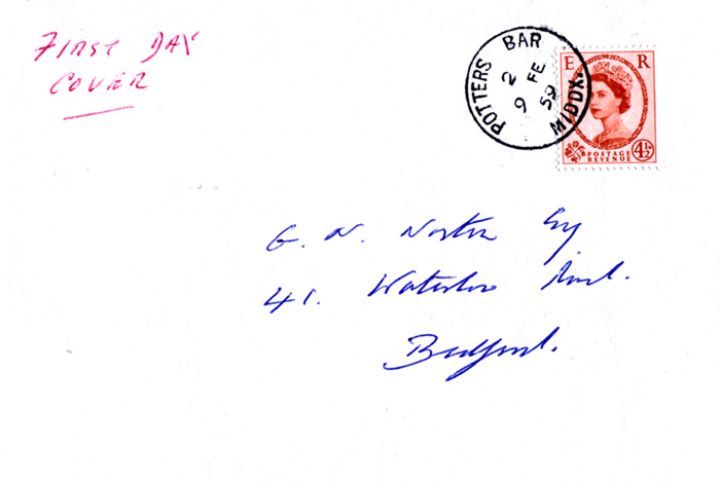 First Day
Cover
POTTERS BAR
2
FE
9
59
MIDDX.
E R
POSTAGE
REVENUE
4½D
G. N. Norton Esq
41. Waterloo Road.
Bedford.